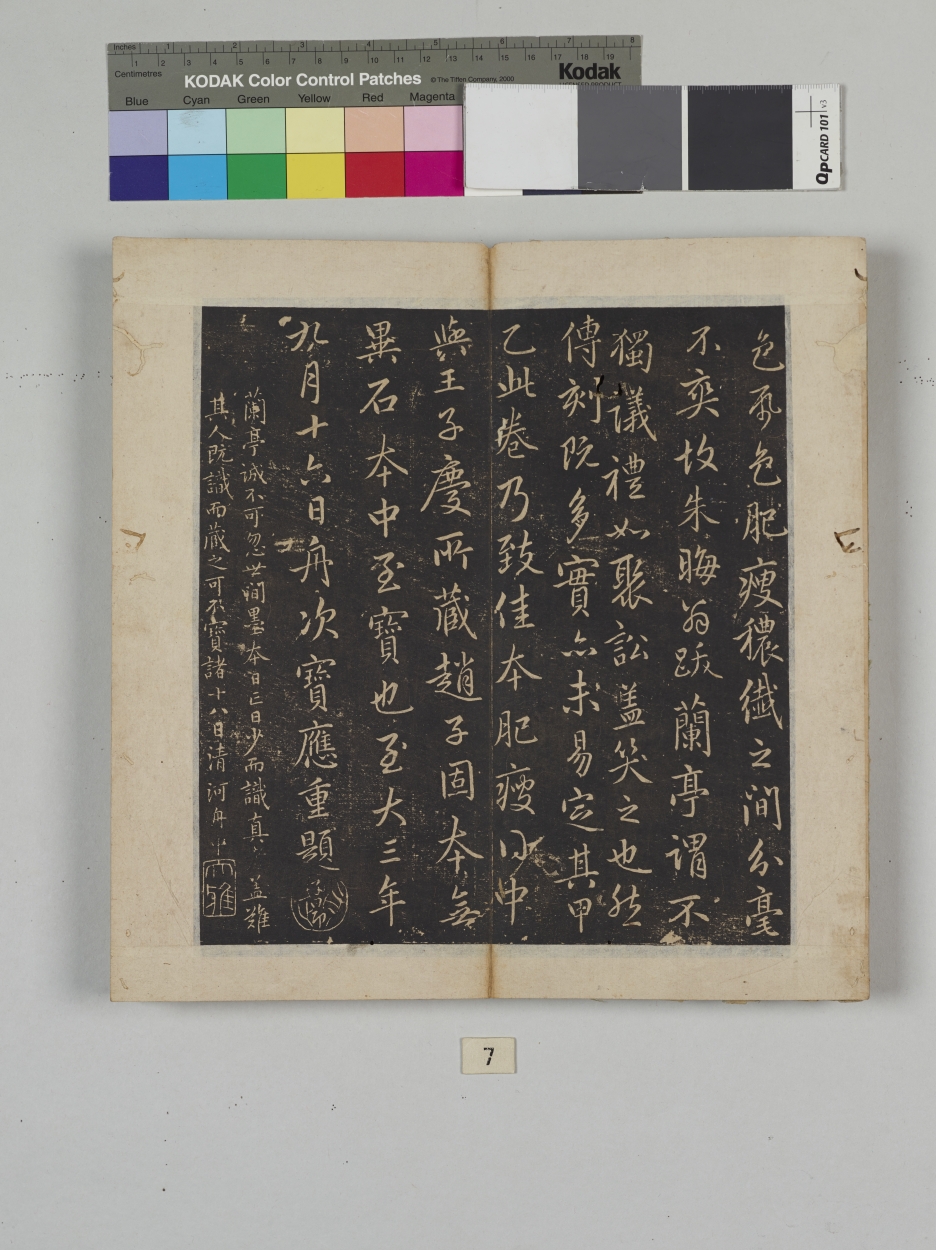 色帋色肥瘦穠纖之間分毫
不爽故朱晦翁跋蘭亭謂不
獨議禮如聚訟盖笑之也然
傳刻既多實亦未易定其甲
乙此卷乃致佳本肥瘦得中
與王子慶所藏趙子固本無
異石本中至寶也至大三年
九月十六日舟次寶應重題
蘭亭誠不可忽世間墨本日亡日少而識真 盖難
其人既識而藏之可不寶諸十八日清河舟中
大雅
Inches 1 2 3 4 5 6 7 8
Centimetres 1 2 3 4 5 6 7 8 9 10 11 12 13 14 15 16 17 18 19
KODAK Color Control Patches © The Tiffen Company, 2000 Kodak
Blue Cyan Green Yellow Red Magenta
QPCARD 101 v3
7